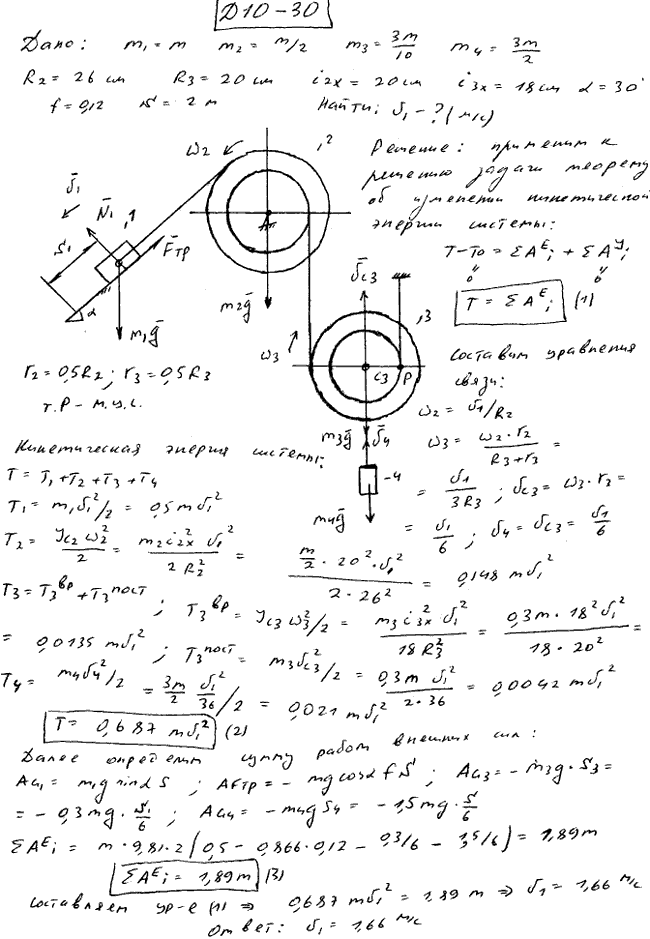 Д10-30
Дано: m₁ = m m₂ = m/2 m₃ = 3m/10 m₄ = 3m/2
R₂ = 26 см R₃ = 20 см i₂ₓ = 20 см i₃ₓ = 18 см α = 30°
f = 0,12 S = 2 м Найти: v₁ - ? (м/с)
Решение: применим к
решению задачи теорему
об изменении кинетической
энергии системы:
T - T₀ = ΣAᴱᵢ + ΣAᴶᵢ
0 0
T = ΣAᴱᵢ (1)
ω₂ ,2
v̄₁ N̄₁ ,1 S₁ F̄тр α m₁ḡ
A₂ m₂ḡ
v̄c₃ ,3 ω₃ C₃ P
m₃ḡ v̄₄ -4 m₄ḡ
r₂ = 0,5R₂; r₃ = 0,5R₃
т. P - м.ц.с.
Составим уравнения
связи:
ω₂ = v₁/R₂
ω₃ = ω₂·r₂/(R₃+r₃) =
= v₁/3R₃; vc₃ = ω₃·r₃ =
= v₁/6; v₄ = vc₃ = v₁/6
Кинетическая энергия системы:
T = T₁+T₂+T₃+T₄
T₁ = m₁v₁²/2 = 0,5mv₁²
T₂ = Jc₂ω₂²/2 = m₂i₂ₓ²v₁²/2R₂² = (m/2·20²·v₁²)/(2·26²) = 0,148 mv₁²
T₃ = T₃ᵇᵖ + T₃ᵖᵒˢᵗ; T₃ᵇᵖ = Jc₃ω₃²/2 = m₃i₃ₓ²v₁²/18R₃² = 0,3m·18²v₁²/18·20² =
= 0,0135 mv₁²; T₃ᵖᵒˢᵗ = m₃vc₃²/2 = 0,3m v₁²/2·36 = 0,0042 mv₁²
T₄ = m₄v₄²/2 = 3m/2 v₁²/36/2 = 0,021 mv₁²
T = 0,687 mv₁² (2)
Далее определим сумму работ внешних сил:
AG₁ = m₁g sinα S; AFтр = - mg cosα f S; AG₃ = - m₃g·S₃ =
= - 0,3mg·S₁/6; AG₄ = - m₄gS₄ = - 1,5mg·S/6
ΣAᴱᵢ = m·9,81·2(0,5 - 0,866·0,12 - 0,3/6 - 1,5/6) = 1,89m
ΣAᴱᵢ = 1,89m (3)
Составляем ур-е (1) ⇒ 0,687 mv₁² = 1,89 m ⇒ v₁ = 1,66 м/с
Ответ: v₁ = 1,66 м/с